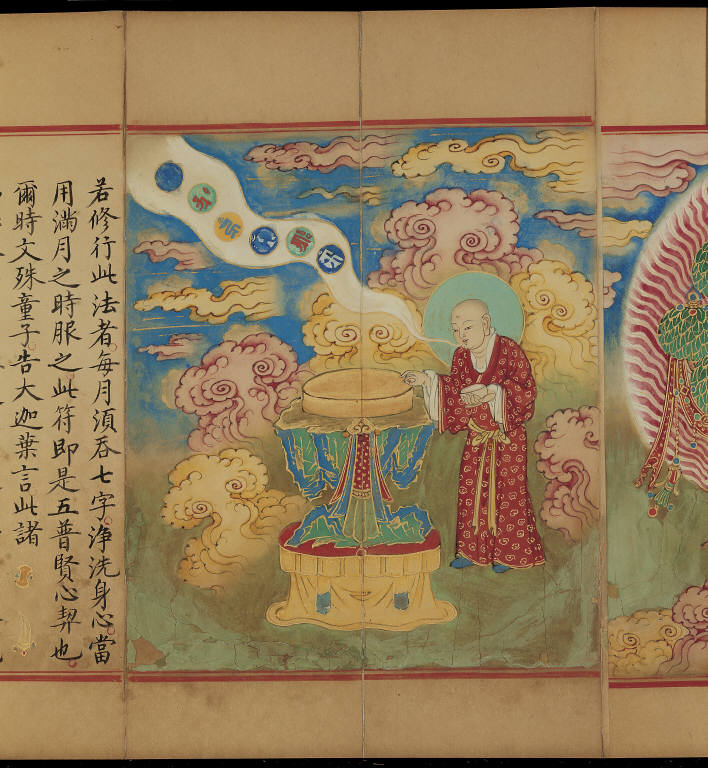 若修行此法者每月須吞七字淨洗身心當
用滿月之時服之此符即是五普賢心契也
爾時文殊童子告大迦葉言此諸